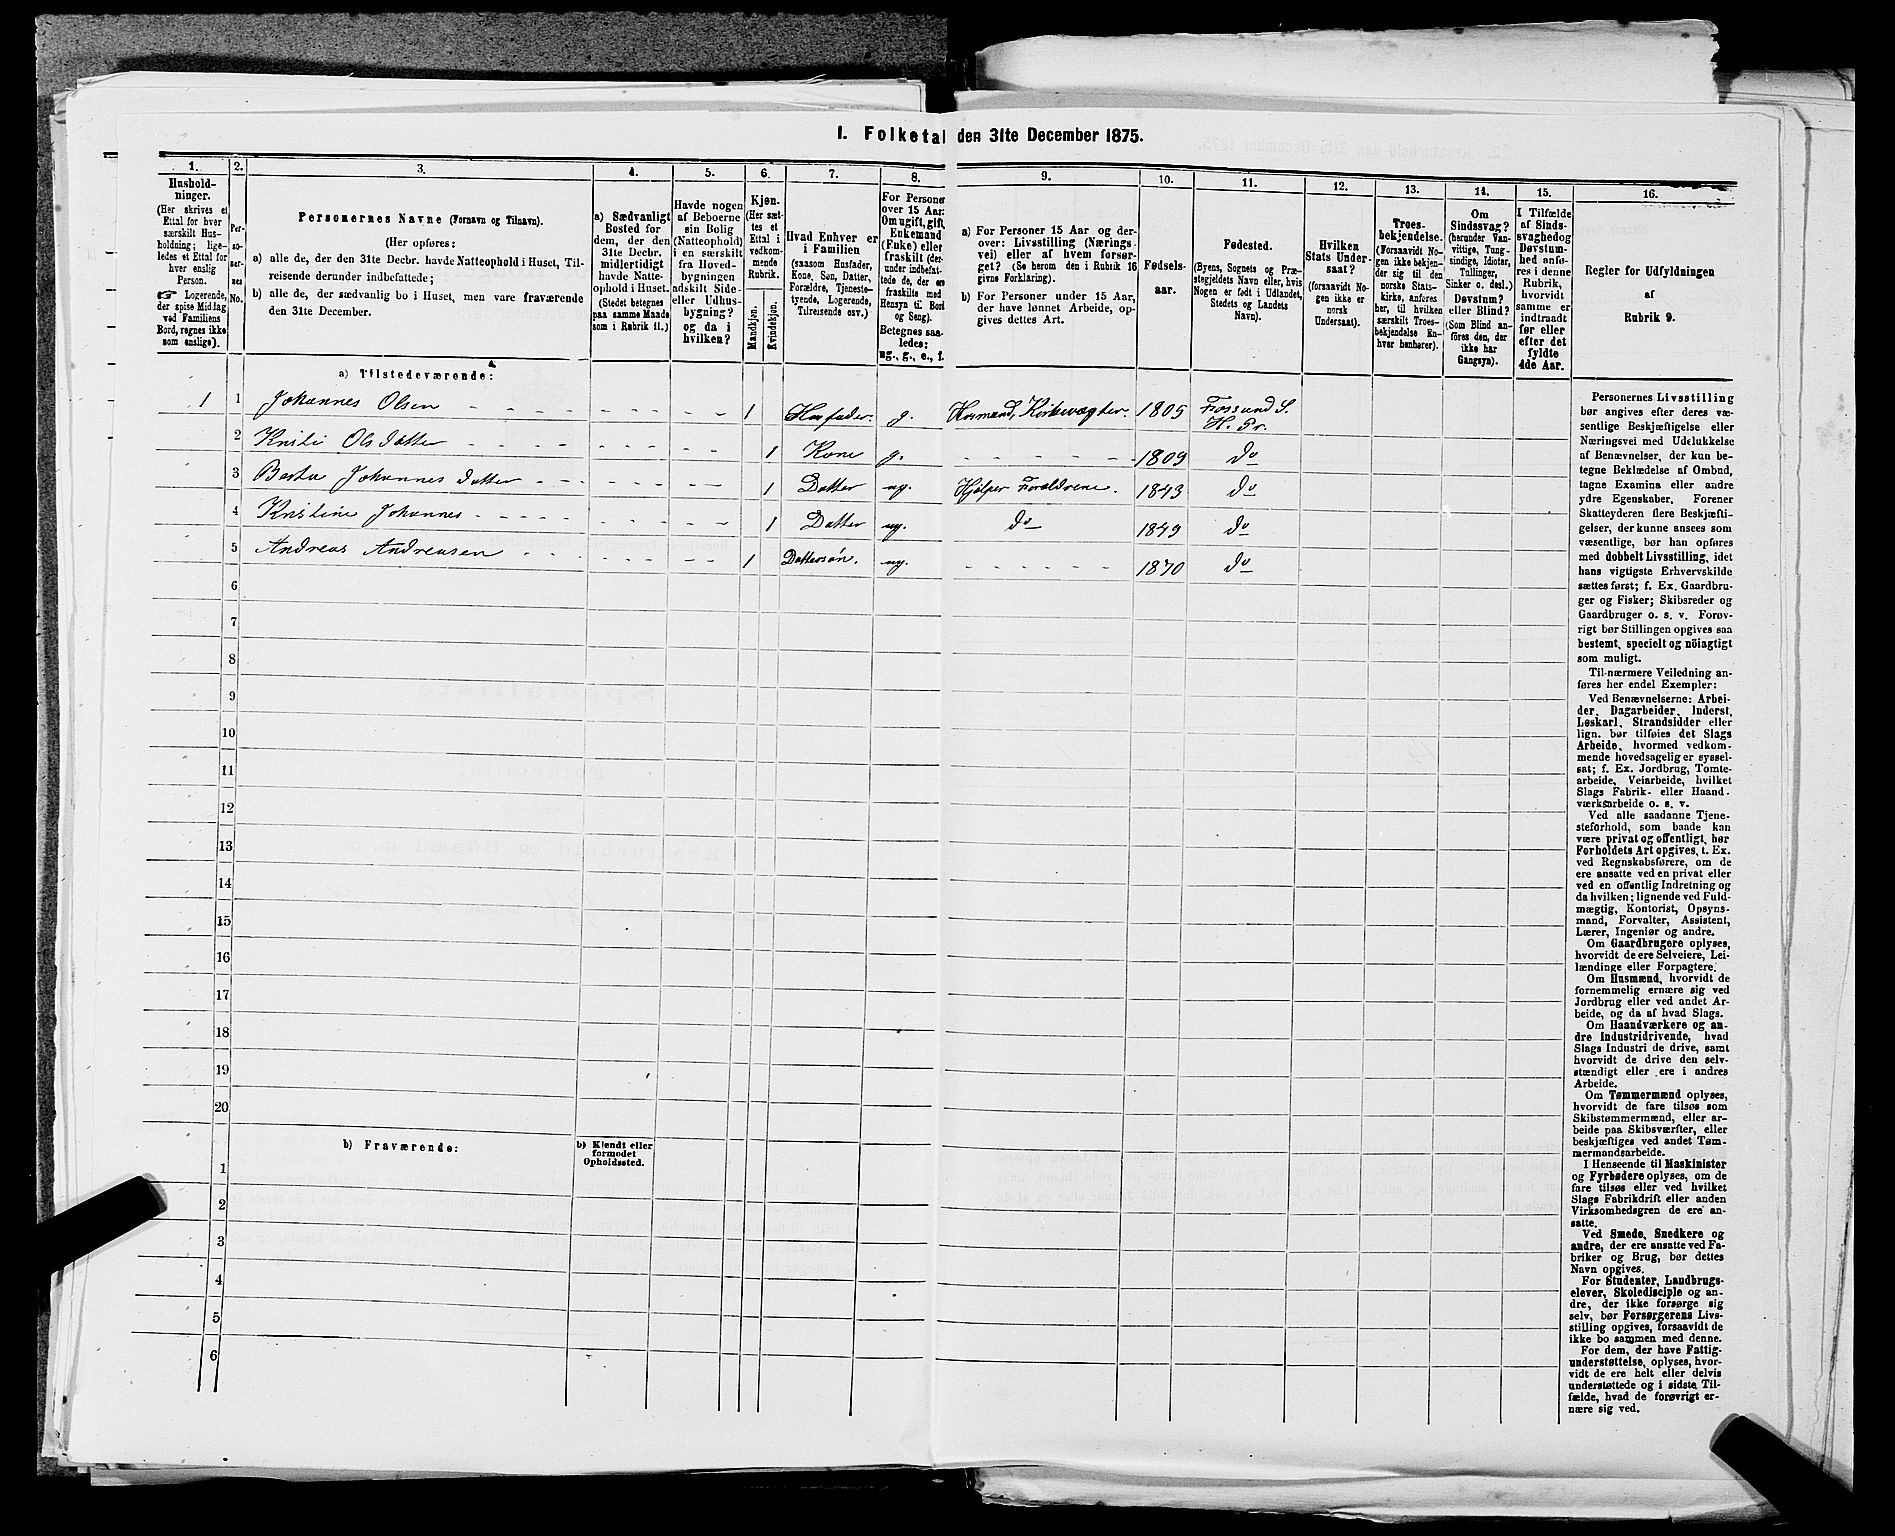 1. Folketal den 31te December 1875.
1.
2.
3.
4.
5.
6.
7.
8.
9.
10.
11.
12.
13.
14.
15.
16.
Hushold-
ninger.
(Her skrives et
Ettal for hver
særskilt Hus-
holdning; lige-
ledes et Ettal for
hver enslig
Person.
☞ Logerende,
der spise Middag
ved Familiens
Bord, regnes ikke
som enslige).
Per-
so-
ner-
nes
No.
Personernes Navne (Fornavn og Tilnavn).
(Her opføres:
a) alle de, der den 31te Decbr. havde Natteophold i Huset, Til-
reisende derunder indbefattede;
b) alle de, der sædvanlig bo i Huset, men vare fraværende
den 31te December.
a) Sædvanligt
Bosted for
dem, der den
31te Decbr.
midlertidigt
havde Natte-
ophold i Huset.
(Stedet betegnes
paa samme Maade
som i Rubrik 11.)
Havde nogen
af Beboerne
sin Bolig
(Natteophold)
i en særskilt
fra Hoved-
bygningen
adskilt Side-
eller Udhus-
bygning?
og da i
hvilken?
Kjøn.
(Her sæt-
tes et
Ettal i
vedkom-
mende
Rubrik.
Mandkjøn.
Kvindekjøn.
Hvad Enhver er
i Familien
(saasom Husfader,
Kone, Søn, Datter,
Forældre, Tjeneste-
tyende, Logerende,
Tilreisende osv.)
For Personer
over 15 Aar:
Om ugift, gift,
Enkemand
(Enke) eller
fraskilt (der-
under indbefat-
tede de, der ere
fraskilte med
Hensyn til Bord
og Seng).
Betegnes saa-
ledes:
ug., g., e., f.
a) For Personer 15 Aar og der-
over: Livsstilling (Nærings-
vei) eller af hvem forsør-
get? (Se herom den i Rubrik 16
givne Forklaring).
b) For Personer under 15 Aar,
der have lønnet Arbeide, op-
gives dettes Art.
Fødsels-
aar.
Fødested.
(Byens, Sognets og Præ-
stegjeldets Navn eller, hvis
Nogen er født i Udlandet,
Stedets og Landets
Navn).
Hvilken
Stats Under-
saat?
(forsaavidt No-
gen ikke er
norsk
Undersaat).
Troes-
bekjendelse.
(Forsaavidt No-
gen ikke bekjen-
der sig til den
norske Stats-
kirke, anføres
her, til hvilken
særskilt Troes-
bekjendelse En-
hver henhører).
Om
Sindssvag?
(herunder Van-
vittige, Tung-
sindige, Idioter,
Tullinger,
Sinker o. desl.)
Døvstum?
eller Blind?
(Som Blind an-
føres den, der
ikke har
Gangsyn).
I Tilfælde
af Sinds-
svaghedog
Døvstum-
hed anfø-
res i denne
Rubrik,
hvorvidt
samme er
indtraadt
før eller
efter det
fyldte
4de Aar.
Regler for Udfyldningen
af
Rubrik 9.
a) Tilstedeværende:
1 1 Johannes Olsen 1 Husfader. g. Husmand, Kirkevægter. 1805 Fossund S.
H. Pr.
2 Kristi Olsdatter 1 Kone g. 1809 do
3 Berta Johannesdatter 1 Datter ug. Hjælper Forældrene. 1843 do
4 Kristine Johannes 1 Datter ug. do 1849 do
5 Andreas Andreasen 1 Dattersøn. ug. 1870 do
6
7
8
9
10
11
12
13
14
15
16
17
18
19
20
b) Fraværende:
b) Kjendt eller
formodet
Opholdssted.
1
2
3
4
5
6
Personernes Livsstilling
bør angives efter deres væ-
sentlige Beskjæftigelse eller
Næringsvei med Udelukkelse
af Benævnelser, der kun be-
tegne Beklædelse af Ombud,
tagne Examina eller andre
ydre Egenskaber. Forener
Skatteyderen flere Beskjæfti-
gelser, der kunne ansees som
væsentlige, bør han opføres
med dobbelt Livsstilling, idet
hans vigtigste Erhvervskilde
sættes først; f. Ex. Gaardbru-
ger og Fisker; Skibsreder og
Gaardbruger o. s. v. Forøv-
rigt bør Stillingen opgives saa
bestemt, specielt og nöiagtigt
som muligt.
Til nærmere Veiledning an-
føres her endel Exempler:
Ved Benævnelserne: Arbei-
der, Dagarbeider, Inderst,
Løskarl, Strandsidder eller
lign. bør tilføies det Slags
Arbeide, hvormed vedkom-
mende hovedsagelig er syssel-
sat; f. Ex. Jordbrug, Tomte-
arbeide, Veiarbeide, hvilket
Slags Fabrik- eller Haand-
værksarbeide o. s. v.
Ved alle saadanne Tjene-
steforhold, som baade kan
være privat og offentligt, bør
Forholdets Art opgives, t. Ex.
ved Regnskabsførere, om de
ere ansatte ved en privat eller
ved en offentlig Indretning og
da hvilken; lignende ved Fuld-
mægtig, Kontorist, Opsyns-
mand, Forvalter, Assistent,
Lærer, Ingeniør og andre.
Om Gaardbrugere oplyses,
hvorvidt de ere Selveiere, Lei-
lændinge eller Forpagtere.
Om Husmænd, hvorvidt de
fornemmelig ernære sig ved
Jordbrug eller ved andet Ar-
beide, og da af hvad Slags.
Om Haandværkere og an-
dre Industridrivende, hvad
Slags Industri de drive, samt
hvorvidt de drive den selv-
stændigt eller ere i andres
Arbeide.
Om Tømmermænd oplyses,
hvorvidt de fare tilsøs som
Skibstømmermænd, eller ar-
beide paa Skibsværfter, eller
beskjæftiges ved andet Tøm-
mermandsarbeide.
I Henseende til Maskinister
og Fyrbødere oplyses, om de
fare tilsøs eller ved hvilket
Slags Fabrikdrift eller anden
Virksomhedsgren de ere an-
satte.
Ved Smede, Snedkere og
andre, der ere ansatte ved Fa-
briker og Brug, bør dettes
Navn opgives.
For Studenter, Landbrugs-
elever, Skoledisciple og an-
dre, der ikke forsørge sig
selv, bør Forsørgerens Livs-
stilling opgives, forsaavidt de
ikke bo sammen med denne.
For dem, der have Fattig-
understøttelse, oplyses, hvor-
vidt de ere helt eller delvis
understøttede og i sidste Til-
fælde, hvad de forøvrigt er-
nære sig ved.